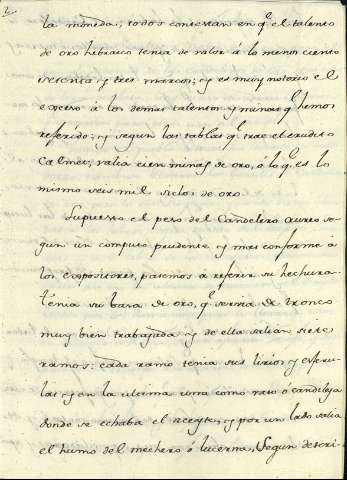 2
la moneda; todos contestan en q.e el talento
de oro hebraico tenia de valor á lo menos ciento
y setenta y tres marcos; y es muy notorio el
exceso á los demas talentos y minas q.e hemos
referido; y segun las tablas q.e trae el erudito
Calmet, valia cien minas de oro, ó lo q.e es lo
mismo seis mil siclos de oro.
Supuesto el peso del Candelero aureo se-
gun un computo prudente y mas conforme á
los expositores, pasemos a referir su hechura.
Tenia su basa de oro, q.e servia de tronco
muy bien trabajada y de ella salian siete
ramos: cada ramo tenia sus lirios y esferu-
las y en la ultima como vaso ó candileja
donde se echaba el aceyte, y por un lado salia
el humo del mechero ó lucerna, Segun descri-